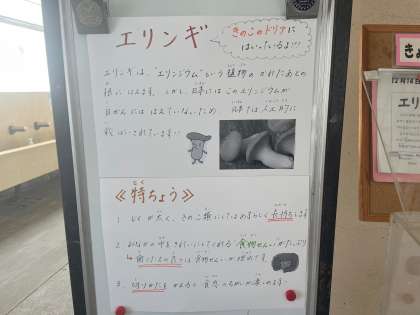 エリンギ
きのこのドリアに
はいっているよ!!
エリンギは、"エリンジウム"という植物のかれたあとの
根にはえます。しかし、日本にはこのエリンジウムが
自然にははえていないため、日本では、人工的に
さいばいされています!!
《特ちょう》
とく
1. じくが太く、きのこ類にしてはめずらしく長持ちします
2. おなかの中をきれいにしてくれる食物せんいがたっぷり
食物せんいが
3. 切りかたをかえると食感のちがいが楽しめます。
12月14日
エリ